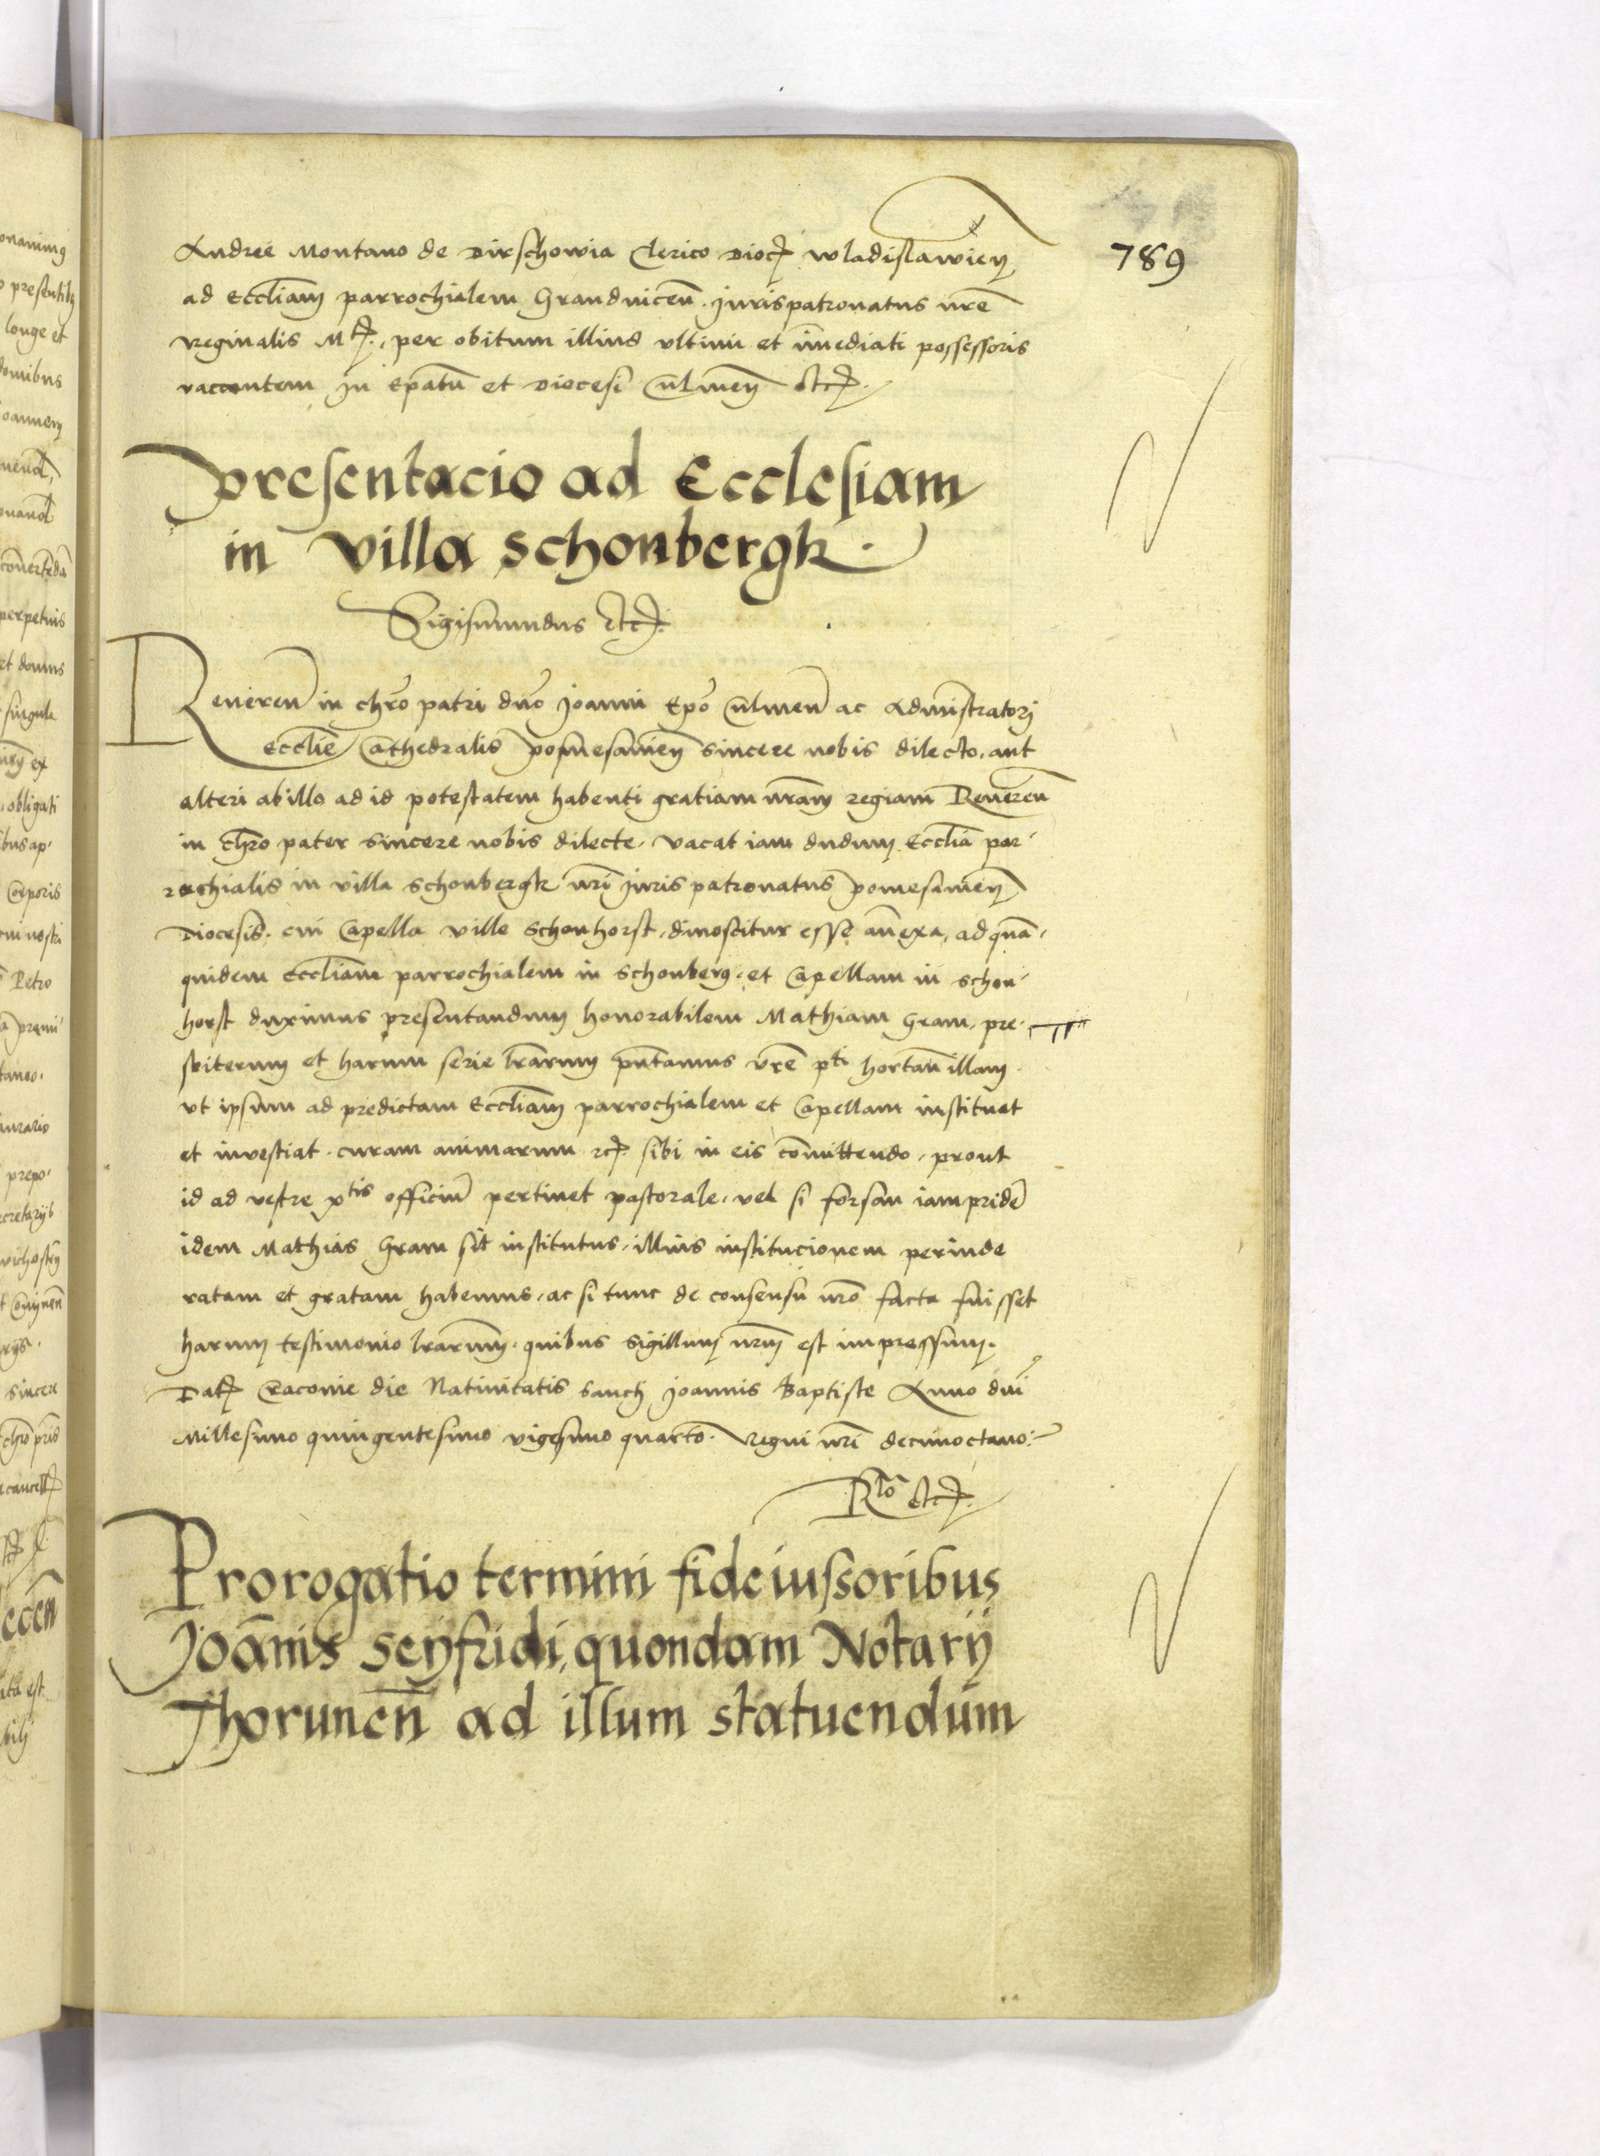 789
Andree Montano de Dirschowia Clerico Dioc wladislawien
ad Eccliam parrochialem Graudnicen̄ Jurispatronatus nr̄e
Reginalis Mt. per obitum illius ultimi et im̄ediati possessoris
vaccantem in Ep̄atu et Diocesi Culmen̄ etc.
presentacio ad Ecclesiam
in villa schonbergk.
Sigismundus etc.
Reueren̄ in chro patri dn̄o Joanni Ep̄o Culmen̄ ac Administratorj
Ecclīe Cathedralis pomesamien̄ sincere nobis dilecto, aut
alteri ab illo ad id potestatem habenti gratiam nr̄am regiam Reueren̄
in chr̄o pater sincere nobis dilecte. vacat iam dudum Ecclīa par-
rochialis in villa schonbergk nr̄i Juris patronatus pomesamien̄
Diocesis. cui Capella ville Schonhorst, dinoscitur esse an̄exa, ad quā
quidem Eccliam parrochialem in Schonberg, et Capellam in Schon-
horst duximus presentandum honorabilem Mathiam Gram, pre-
sbiterum et harum serie lr̄arum pn̄tamus vr̄e pti hortan̄ illam
ut ipsum ad predictam Eccliam parrochialem et Capellam instituat
et inuestiat. curam animarum etc sibi in eis com̄ittendo, prout
id ad vestre ptis officiū pertinet pastorale, vel si forsan iampridē
idem Mathias Gram sit institutus, illius institucionem perinde
ratam et gratam habemus, ac si tunc de consensu nr̄o facta fuisset
harum testimonio lr̄arum. quibus Sigillum nr̄um est impressum.
Dat Cracouie die Natiuitatis sancti Joannis Baptiste Anno dn̄i
Millesimo quingentesimo vigesimo quarto. Regni nr̄i decimoctauo.
Rlō etc.
Prorogatio termini fideiussoribus
Joān̄is Seyfridi, quondam Notarij
Thorunen̄ ad illum statuendum